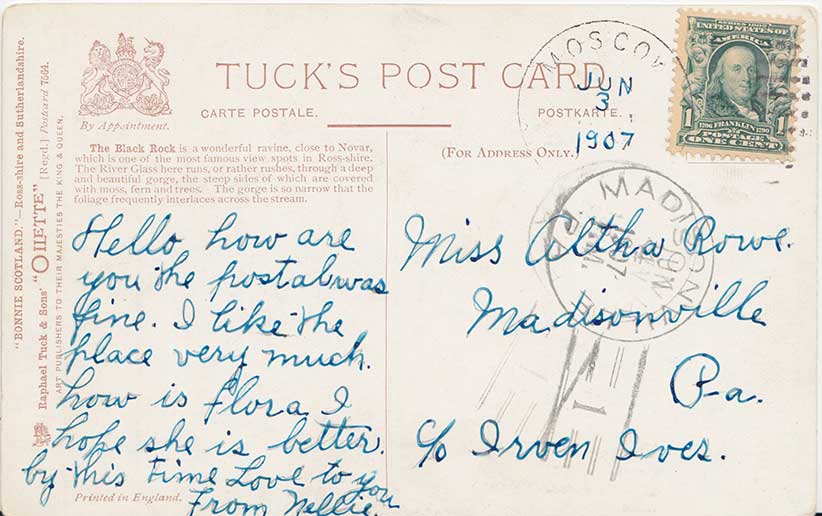 "BONNIE SCOTLAND."—Ross-shire and Sutherlandshire.
Raphael Tuck & Sons' "OILETTE" [Regd.] Postcard 7564.
ART PUBLISHERS TO THEIR MAJESTIES THE KING & QUEEN.
By Appointment.
TUCK'S POST CARD
CARTE POSTALE.
POSTKARTE.
(FOR ADDRESS ONLY.)
The Black Rock is a wonderful ravine, close to Novar,
which is one of the most famous view spots in Ross-shire.
The River Glass here runs, or rather rushes, through a deep
and beautiful gorge, the steep sides of which are covered
with moss, fern and trees. The gorge is so narrow that the
foliage frequently interlaces across the stream.
MOSCOW
JUN
3
1907
SERIES 1902
UNITED STATES OF
AMERICA
1
1
1706 FRANKLIN 1790
POSTAGE
ONE CENT
MADISON
Hello how are
you the postal was
fine. I like the
place very much.
how is Flora I
hope she is better.
by this time Love to you
From Nellie.
Miss Altha Rowe.
Madisonville
Pa.
c/o Irven Ives.
1
Printed in England.